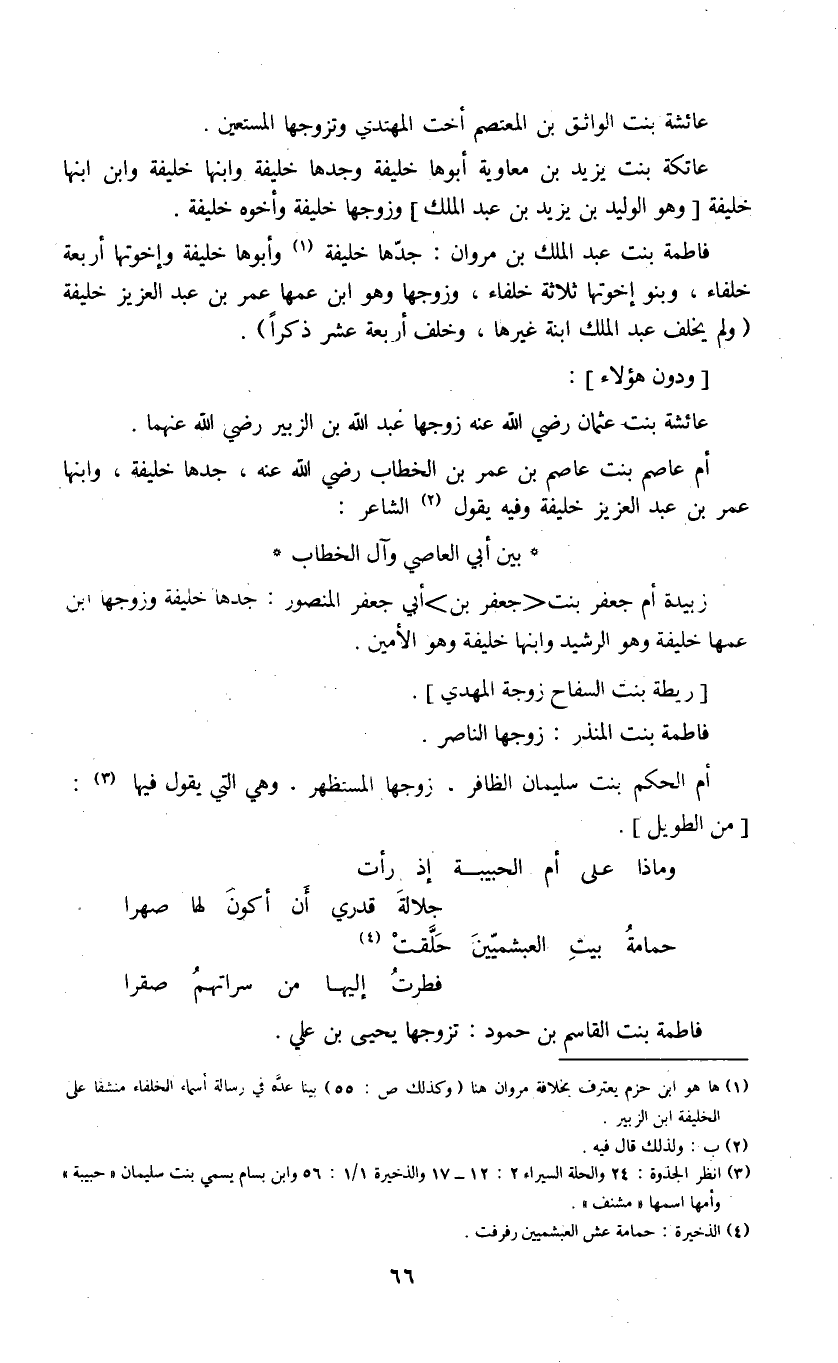 عائشة بنت الواثق بن المعتصم أخت المهتدي وتزوجها المستعين .
عاتكة بنت يزيد بن معاوية أبوها خليفة وجدها خليفة وابنها خليفة وابن ابنها
خليفة [ وهو الوليد بن يزيد بن عبد الملك ] وزوجها خليفة وأخوه خليفة .
فاطمة بنت عبد الملك بن مروان : جدّها خليفة (١) وأبوها خليفة وإخوتها أربعة
خلفاء ، وبنو إخوتها ثلاثة خلفاء ، وزوجها وهو ابن عمها عمر بن عبد العزيز خليفة
( ولم يخلف عبد الملك ابنة غيرها ، وخلف أربعة عشر ذكراً ) .
[ ودون هؤلاء ] :
عائشة بنت عثمان رضي الله عنه زوجها عبد الله بن الزبير رضي الله عنهما .
أم عاصم بنت عاصم بن عمر بن الخطاب رضي الله عنه ، جدها خليفة ، وابنها
عمر بن عبد العزيز خليفة وفيه يقول (٢) الشاعر :
* بين أبي العاصي وآل الخطاب *
زبيدة أم جعفر بنت <جعفر بن> أبي جعفر المنصور : جدها خليفة وزوجها ابن
عمها خليفة وهو الرشيد وابنها خليفة وهو الأمين .
[ ريطة بنت السفاح زوجة المهدي ] .
فاطمة بنت المنذر : زوجها الناصر .
أم الحكم بنت سليمان الظافر . زوجها المستظهر . وهي التي يقول فيها (٣) :
[ من الطويل ] .
وماذا على أم الحبيبة إذ رأت
جلالةَ قدري أَن أكونَ لها صهرا
حمامةُ بيتِ العبشميّينَ حَلَّقتْ (٤)
فطرتُ إليها من سراتهمُ صقرا
فاطمة بنت القاسم بن حمود : تزوجها يحيى بن علي .
(١) ها هو ابن حزم يعترف بخلافة مروان هنا ( وكذلك ص : ٥٥ ) بينا عدَّه في رسالة أسماء الخلفاء منشقا على
الخليفة ابن الزبير .
(٢) ب : ولذلك قال فيه .
(٣) انظر الجذوة : ٢٤ والحلة السيراء ٢ : ١٢ ــ ١٧ والذخيرة ١/١ : ٥٦ وابن بسام يسمي بنت سليمان « حبيبة »
وأمها اسمها « مشنف » .
(٤) الذخيرة : حمامة عش العبشميين رفرفت .
٦٦